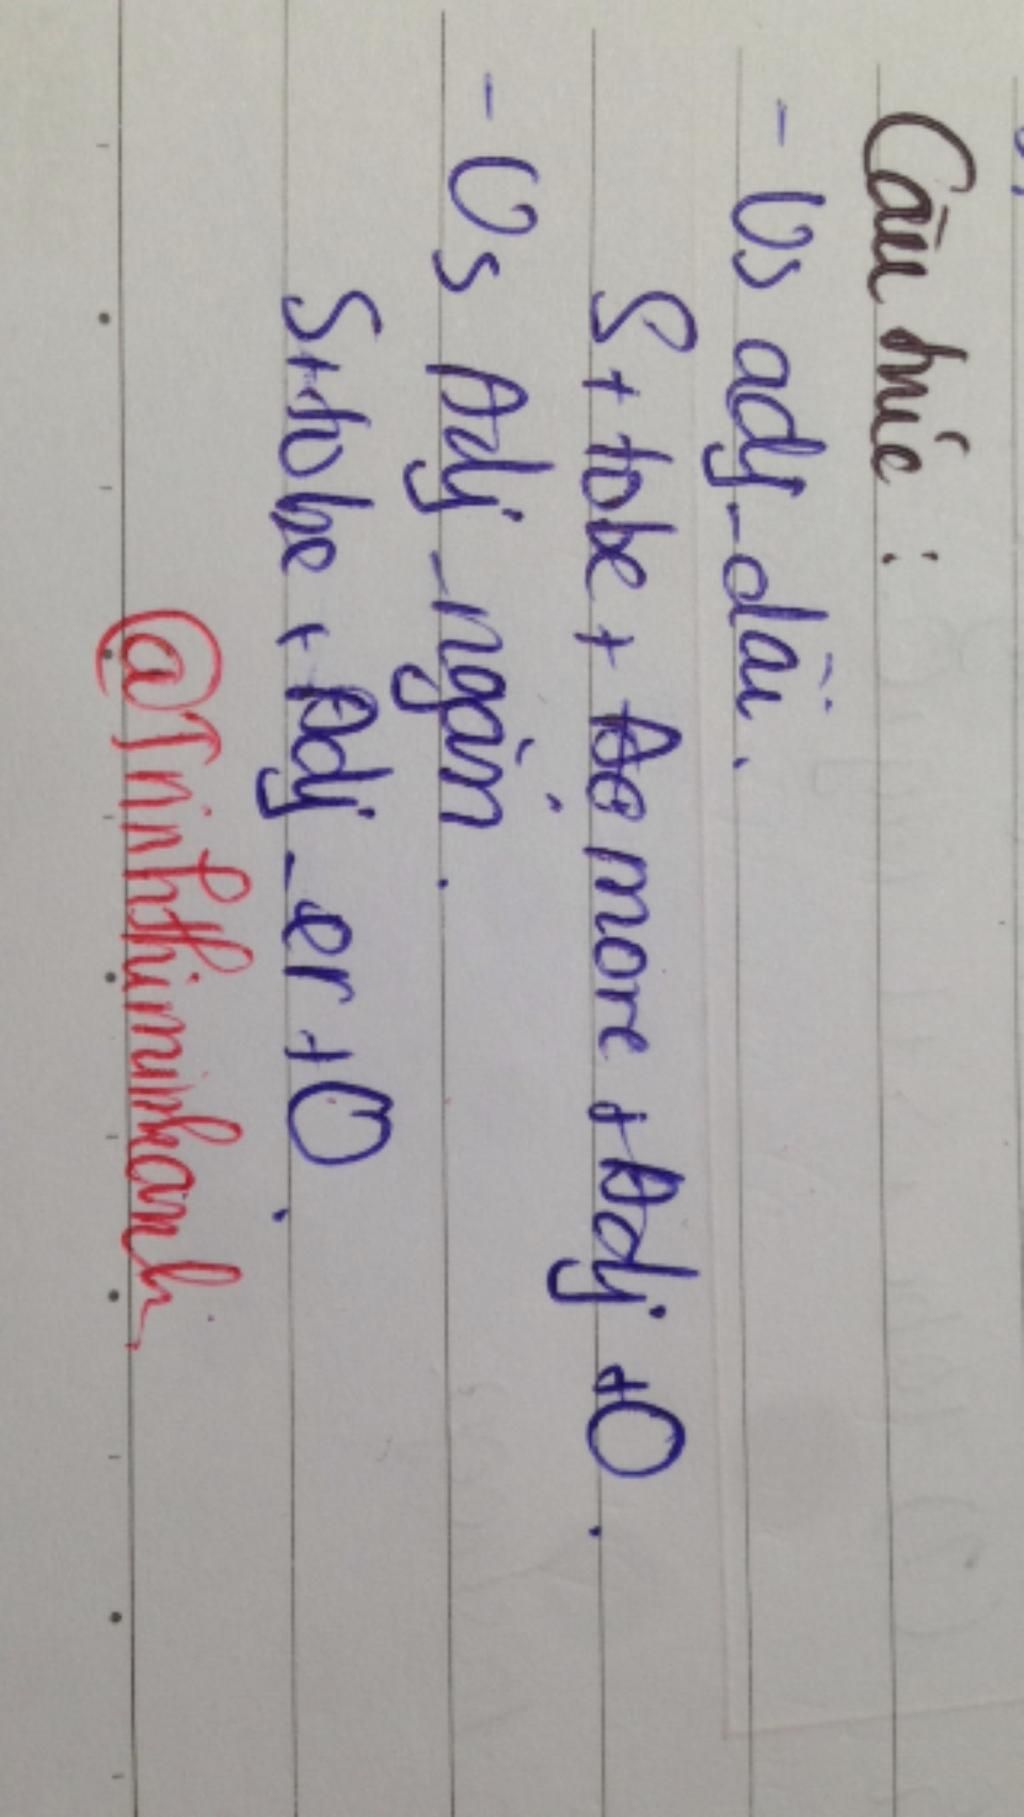 Cấu trúc :
- Vs adj_dài.
S + tobe + more + Adj + O.
- Vs Adj_ngắn.
S + tobe + Adj_er + O.
@Trinhthiminhanh